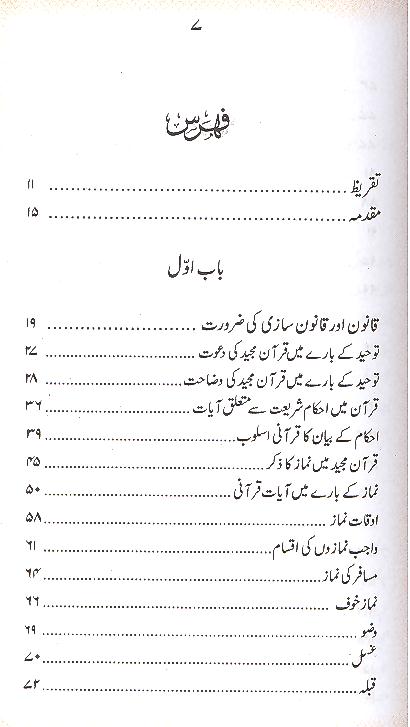 ۷
فہرس
تقریظ ........................................ ۱۱
مقدمہ ........................................ ۱۵
باب اوّل
قانون اور قانون سازی کی ضرورت ........................ ۱۹
توحید کے بارے میں قرآن مجید کی دعوت ........................ ۲۷
توحید کے بارے میں قرآن مجید کی وضاحت ........................ ۲۸
قرآن میں احکام شریعت سے متعلق آیات ........................ ۳۶
احکام کے بیان کا قرآنی اسلوب ........................ ۳۹
قرآن مجید میں نماز کا ذکر ........................ ۴۵
نماز کے بارے میں آیات قرآنی ........................ ۵۰
اوقات نماز ........................ ۵۸
واجب نمازوں کی اقسام ........................ ۶۱
مسافر کی نماز ........................ ۶۴
نماز خوف ........................ ۶۶
وضو ........................ ۶۹
غسل ........................ ۷۰
قبلہ ........................ ۷۲